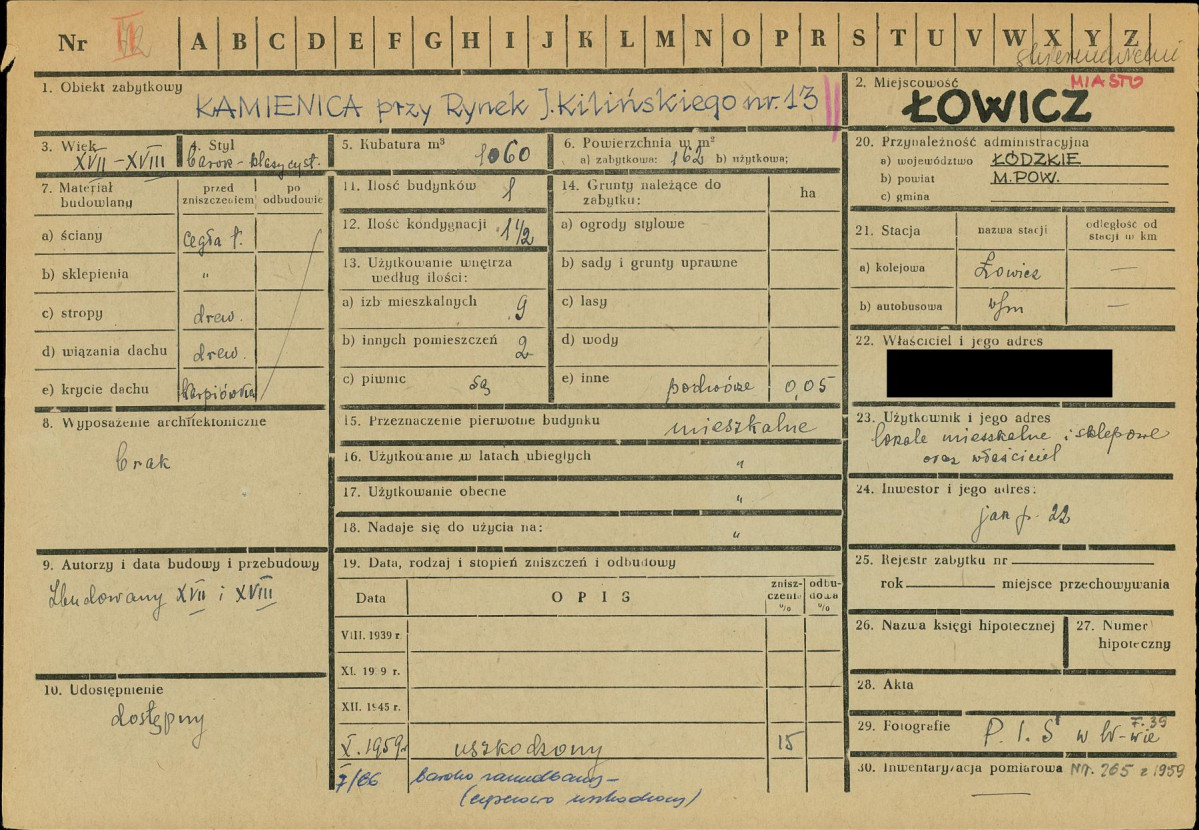 Nr III A B C D E F G H I J K L M N O P R S T U V W X Y Z
skierniewickie
1. Obiekt zabytkowy
KAMIENICA przy Rynek J. Kilińskiego nr. 13
2. Miejscowość MIASTO
ŁOWICZ
3. Wiek
XVII-XVIII
4. Styl
barok-klasycyst.
5. Kubatura m³
1060
6. Powierzchnia w m²
a) zabytkowa: 162 b) użytkowa:
7. Materiał budowlany
przed zniszczeniem
po odbudowie
a) ściany cegła p.
b) sklepienia "
c) stropy drew.
d) wiązania dachu drew.
e) krycie dachu karpiówka
8. Wyposażenie architektoniczne
brak
9. Autorzy i data budowy i przebudowy
Zbudowany XVII i XVIII
10. Udostępnienie
dostępny
11. Ilość budynków 1
12. Ilość kondygnacji 1 1/2
13. Użytkowanie wnętrza
według ilości:
a) izb mieszkalnych 9
b) innych pomieszczeń 2
c) piwnic są
14. Grunty należące do
zabytku:
ha
a) ogrody stylowe
b) sady i grunty uprawne
c) lasy
d) wody
e) inne podwórze 0,05
15. Przeznaczenie pierwotne budynku mieszkalne
16. Użytkowanie w latach ubiegłych "
17. Użytkowanie obecne "
18. Nadaje się do użycia na: "
19. Data, rodzaj i stopień zniszczeń i odbudowy
Data OPIS zniszczenie % odbudowa %
VIII. 1939 r.
XI. 19 9 r.
XII. 1945 r.
X. 1959 r uszkodzony 15
7/66 bardzo zaniedbany-
(częściowo uszkodzony)
20. Przynależność administracyjna
a) województwo ŁÓDZKIE
b) powiat M.POW.
c) gmina
21. Stacja
nazwa stacji
odległość od stacji w km
a) kolejowa Łowicz —
b) autobusowa —
22. Właściciel i jego adres
23. Użytkownik i jego adres
lokale mieszkalne i sklepowe
oraz właściciel
24. Inwestor i jego adres:
jak p. 22
25. Rejestr zabytku nr
rok miejsce przechowywania
26. Nazwa księgi hipotecznej
27. Numer
hipoteczny
28. Akta
29. Fotografie P. I. S w W-wie F. 39
30. Inwentaryzacja pomiarowa Nr. 265 z 1959